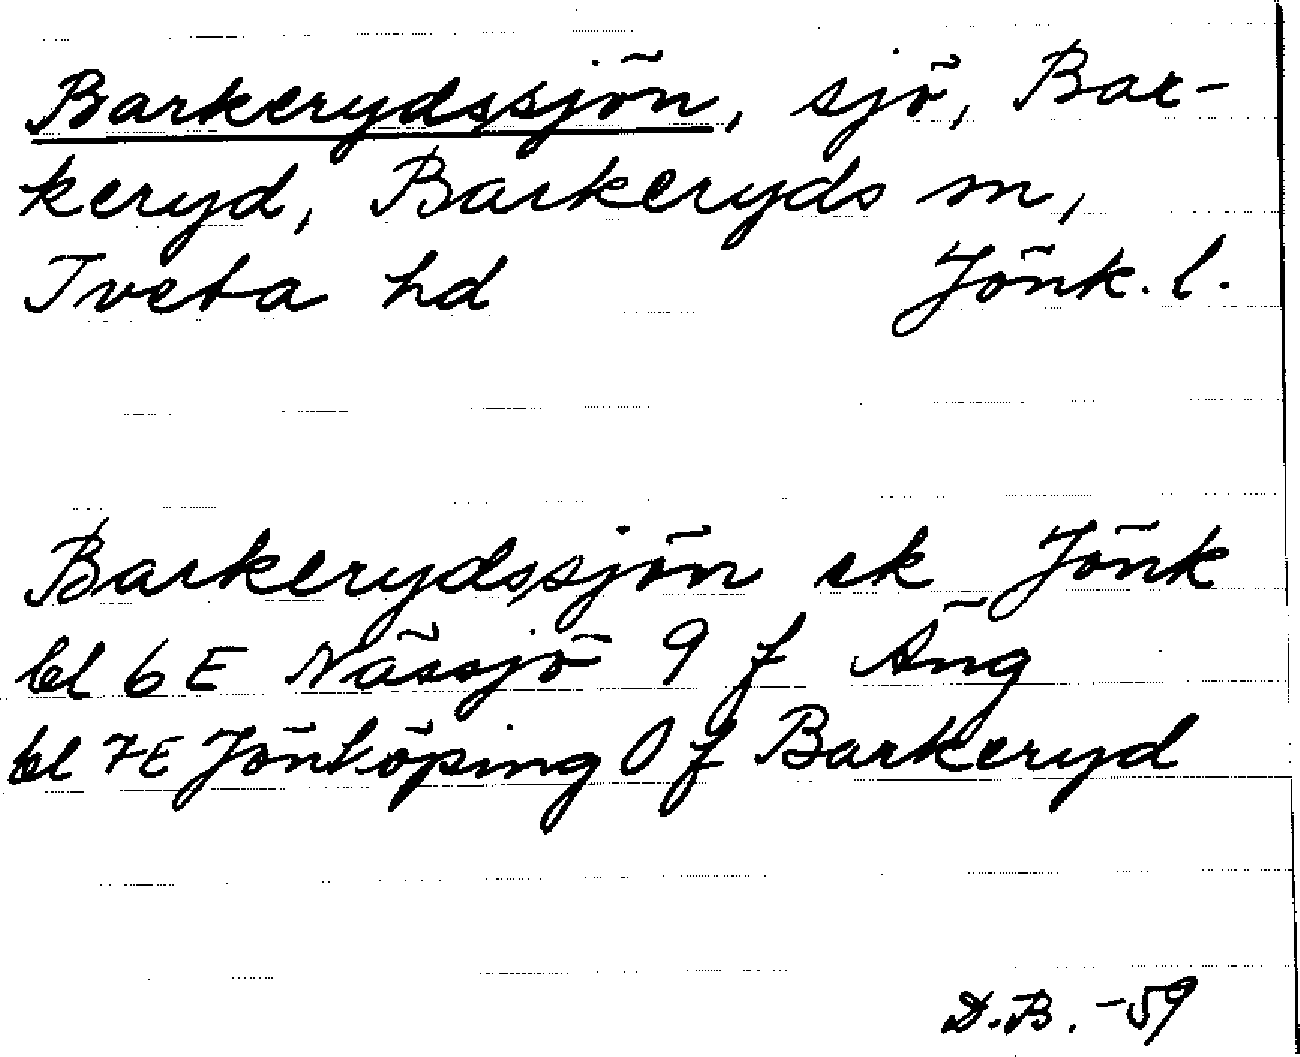 Barkerydssjön, sjö, Bar-
keryd, Barkeryds sn,
Tveta hd Jönk. l.
Barkerydssjön ek Jönk
bl 6E Nässjö 9 f Äng
bl 7E Jönköping 0 f Barkeryd
D.B. -59